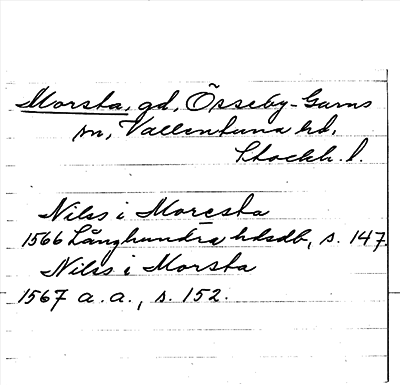 Morsta, gd, Össeby-Garns
sn, Vallentuna hd,
Stockh. l.
Nils i Moresta
1566 Långhundra hdsdb, s. 147.
Nils i Morsta
1567 a. a., s. 152.